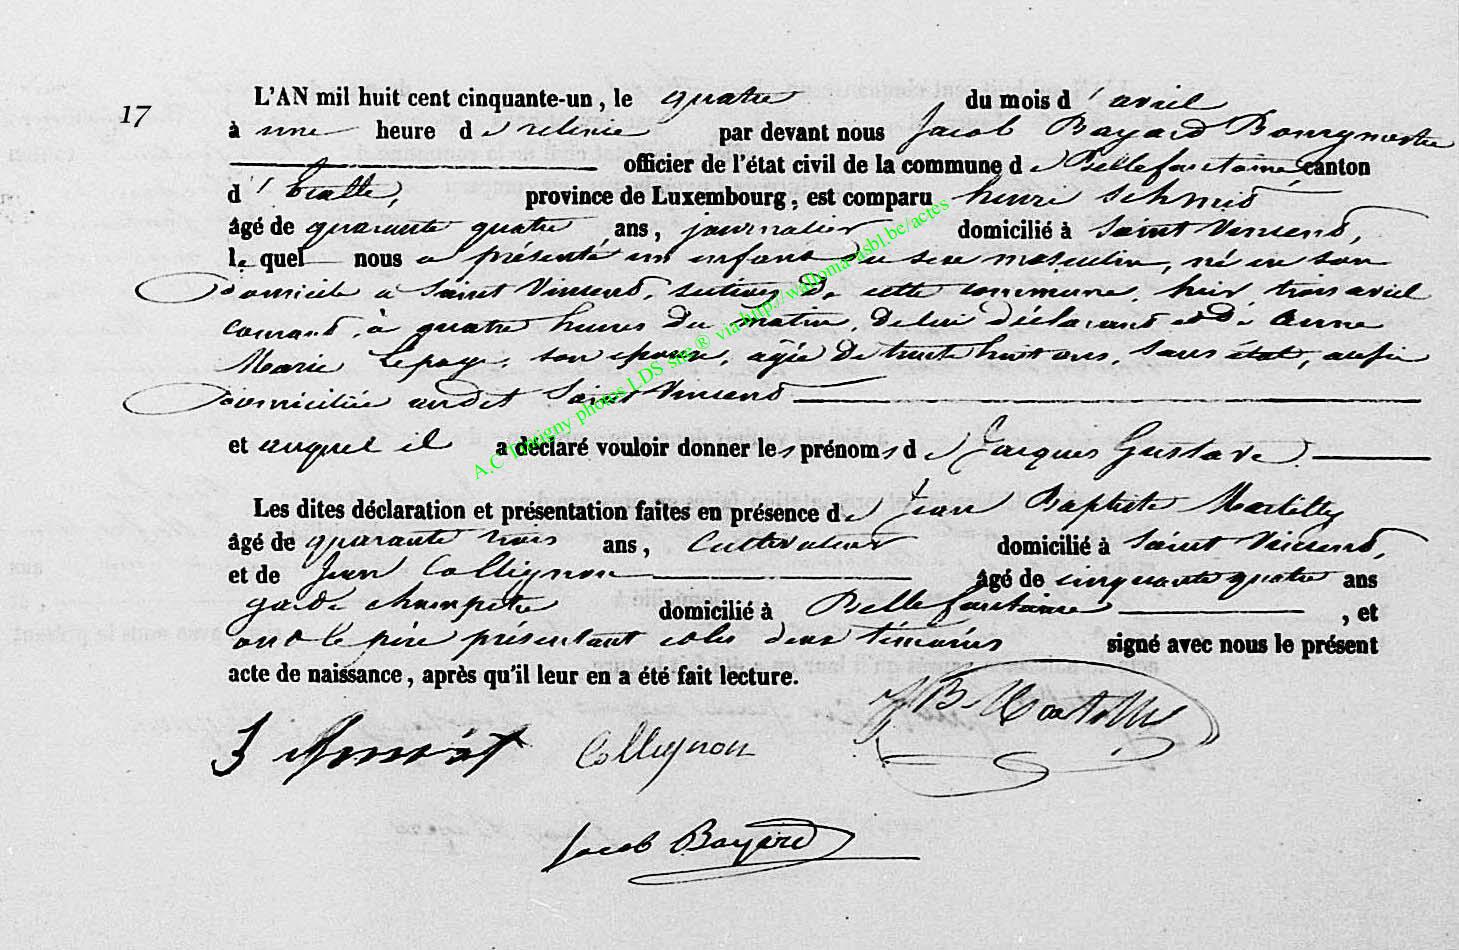 17
L'AN mil huit cent cinquante-un, le quatre du mois d'avril
à une heure de relevée par devant nous Jacob Bayard Bourgmestre
officier de l'état civil de la commune de Bellefontaine, canton
d'Etalle, province de Luxembourg, est comparu henri Schmid
âgé de quarante quatre ans, journalier domicilié à Saint Vincend,
lequel nous a présenté un enfant du sexe masculin, né en son
domicile à Saint Vincend, section de cette commune, hier, trois avril
courand, à quatre heures du matin, de lui déclarand et de Anne
Marie Lepage, son épouse, agée de trente huit ans, sans état, aussi
domiciliée audit Saint Vincend
et auquel il a déclaré vouloir donner les prénoms de Jacques Gustave
Les dites déclaration et présentation faites en présence de Jean Baptiste Martilly
âgé de quarante trois ans, cultivateur domicilié à Saint Vincend,
et de Jean Collignon âgé de cinquante quatre ans
garde champetre domicilié à Bellefontaine, et
ont le père présentant et les deux témoins signé avec nous le présent
acte de naissance, après qu'il leur en a été fait lecture.
JB Martilly
Collignon
Jacob Bayard
A.C Tintigny photos LDS site ® via http://wallonia-asbl.be/actes